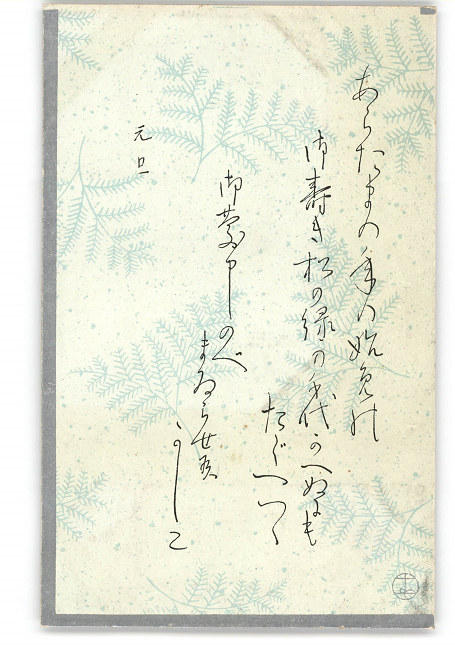 あらたまの年の始めの
御寿き松の緑の千代かへぬにも
たぐへつゝ
御慶申しのべ
まゐらせ候
かしこ
元旦